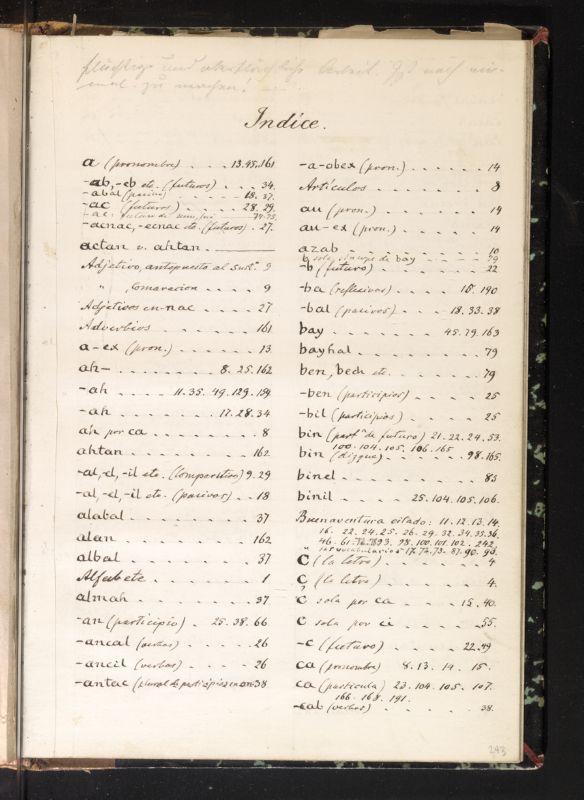 flüchtige und oberflächliche Arbeit. Ist noch ein-
mal zu machen!
Indice.
a (pronombre) . . . . 13.45.161
-ab, -eb etc. (futuros) . . . 34.
-abal (pasivo) . . . . 18. 37.
-ac (futuros) . . . . 28. 29.
-acnac, -ecnac etc. (futuros) . . 27.
actan v. ahtan.
Adjetivo, antepuesto al sust.º 9
" , comparacion . . . . 9
Adjetivos en -nac . . . . 27
Adverbios . . . . 161
a-ex (pron.) . . . . 13
ah- . . . . 8. 25. 162
-ah . . . . 11. 35. 49. 129. 154
-ah . . . . 17. 28. 34
ah por ca . . . . 8
ahtan . . . . 162
-al, el, -il etc. (comparativo) 9. 29
-al, -el, -il etc. (pasivos) . . 18
alabal . . . . 37
alan . . . . 162
albal . . . . 37
Alfabeto . . . . 1
almah . . . . 37
-an (participio) . . 25. 38. 66
-ancal (verbos) . . . . 26
-ancil (verbos) . . . . 26
-antac (plural de participios en an) 38
-a-obex (pron.) . . . . 14
Artículos . . . . 8
au (pron.) . . . . 14
au-ex (pron.) . . . . 14
azab . . . . 10
b solo, en lugar de bay . . . . 79
-b (futuro) . . . . 22
-ba (reflexivos) . . . . 18. 190
-bal (pasivos) . . . . 18. 33. 38
bay . . . . 45. 79. 163
bayhal . . . . 79
ben, bech etc. . . . . 79
-ben (participios) . . . . 25
-bil (participios) . . . . 25
bin (part.ª de futuro) 21. 22. 24. 53.
100. 104. 105. 106. 165
bin (dizque) . . . . 98. 165.
binel . . . . 83
binil . . . . 25. 104. 105. 106.
Buenaventura citado: 11. 12. 13. 14.
16. 22. 24. 25. 26. 29. 32. 34. 35. 36.
" las vocabularios 17. 72. 73. 87. 90. 93.
C (la letra) . . . . 4
C (la letra) . . . . 4.
C sola por ca . . . . 15. 40.
C sola por ci . . . . 55.
-c (futuro) . . . . 22. 29
ca (pronombre) 8. 13. 14. 15.
ca (particula) 23. 104. 105. 107.
166. 168. 191.
-cab (verbos) . . . . 38.
243